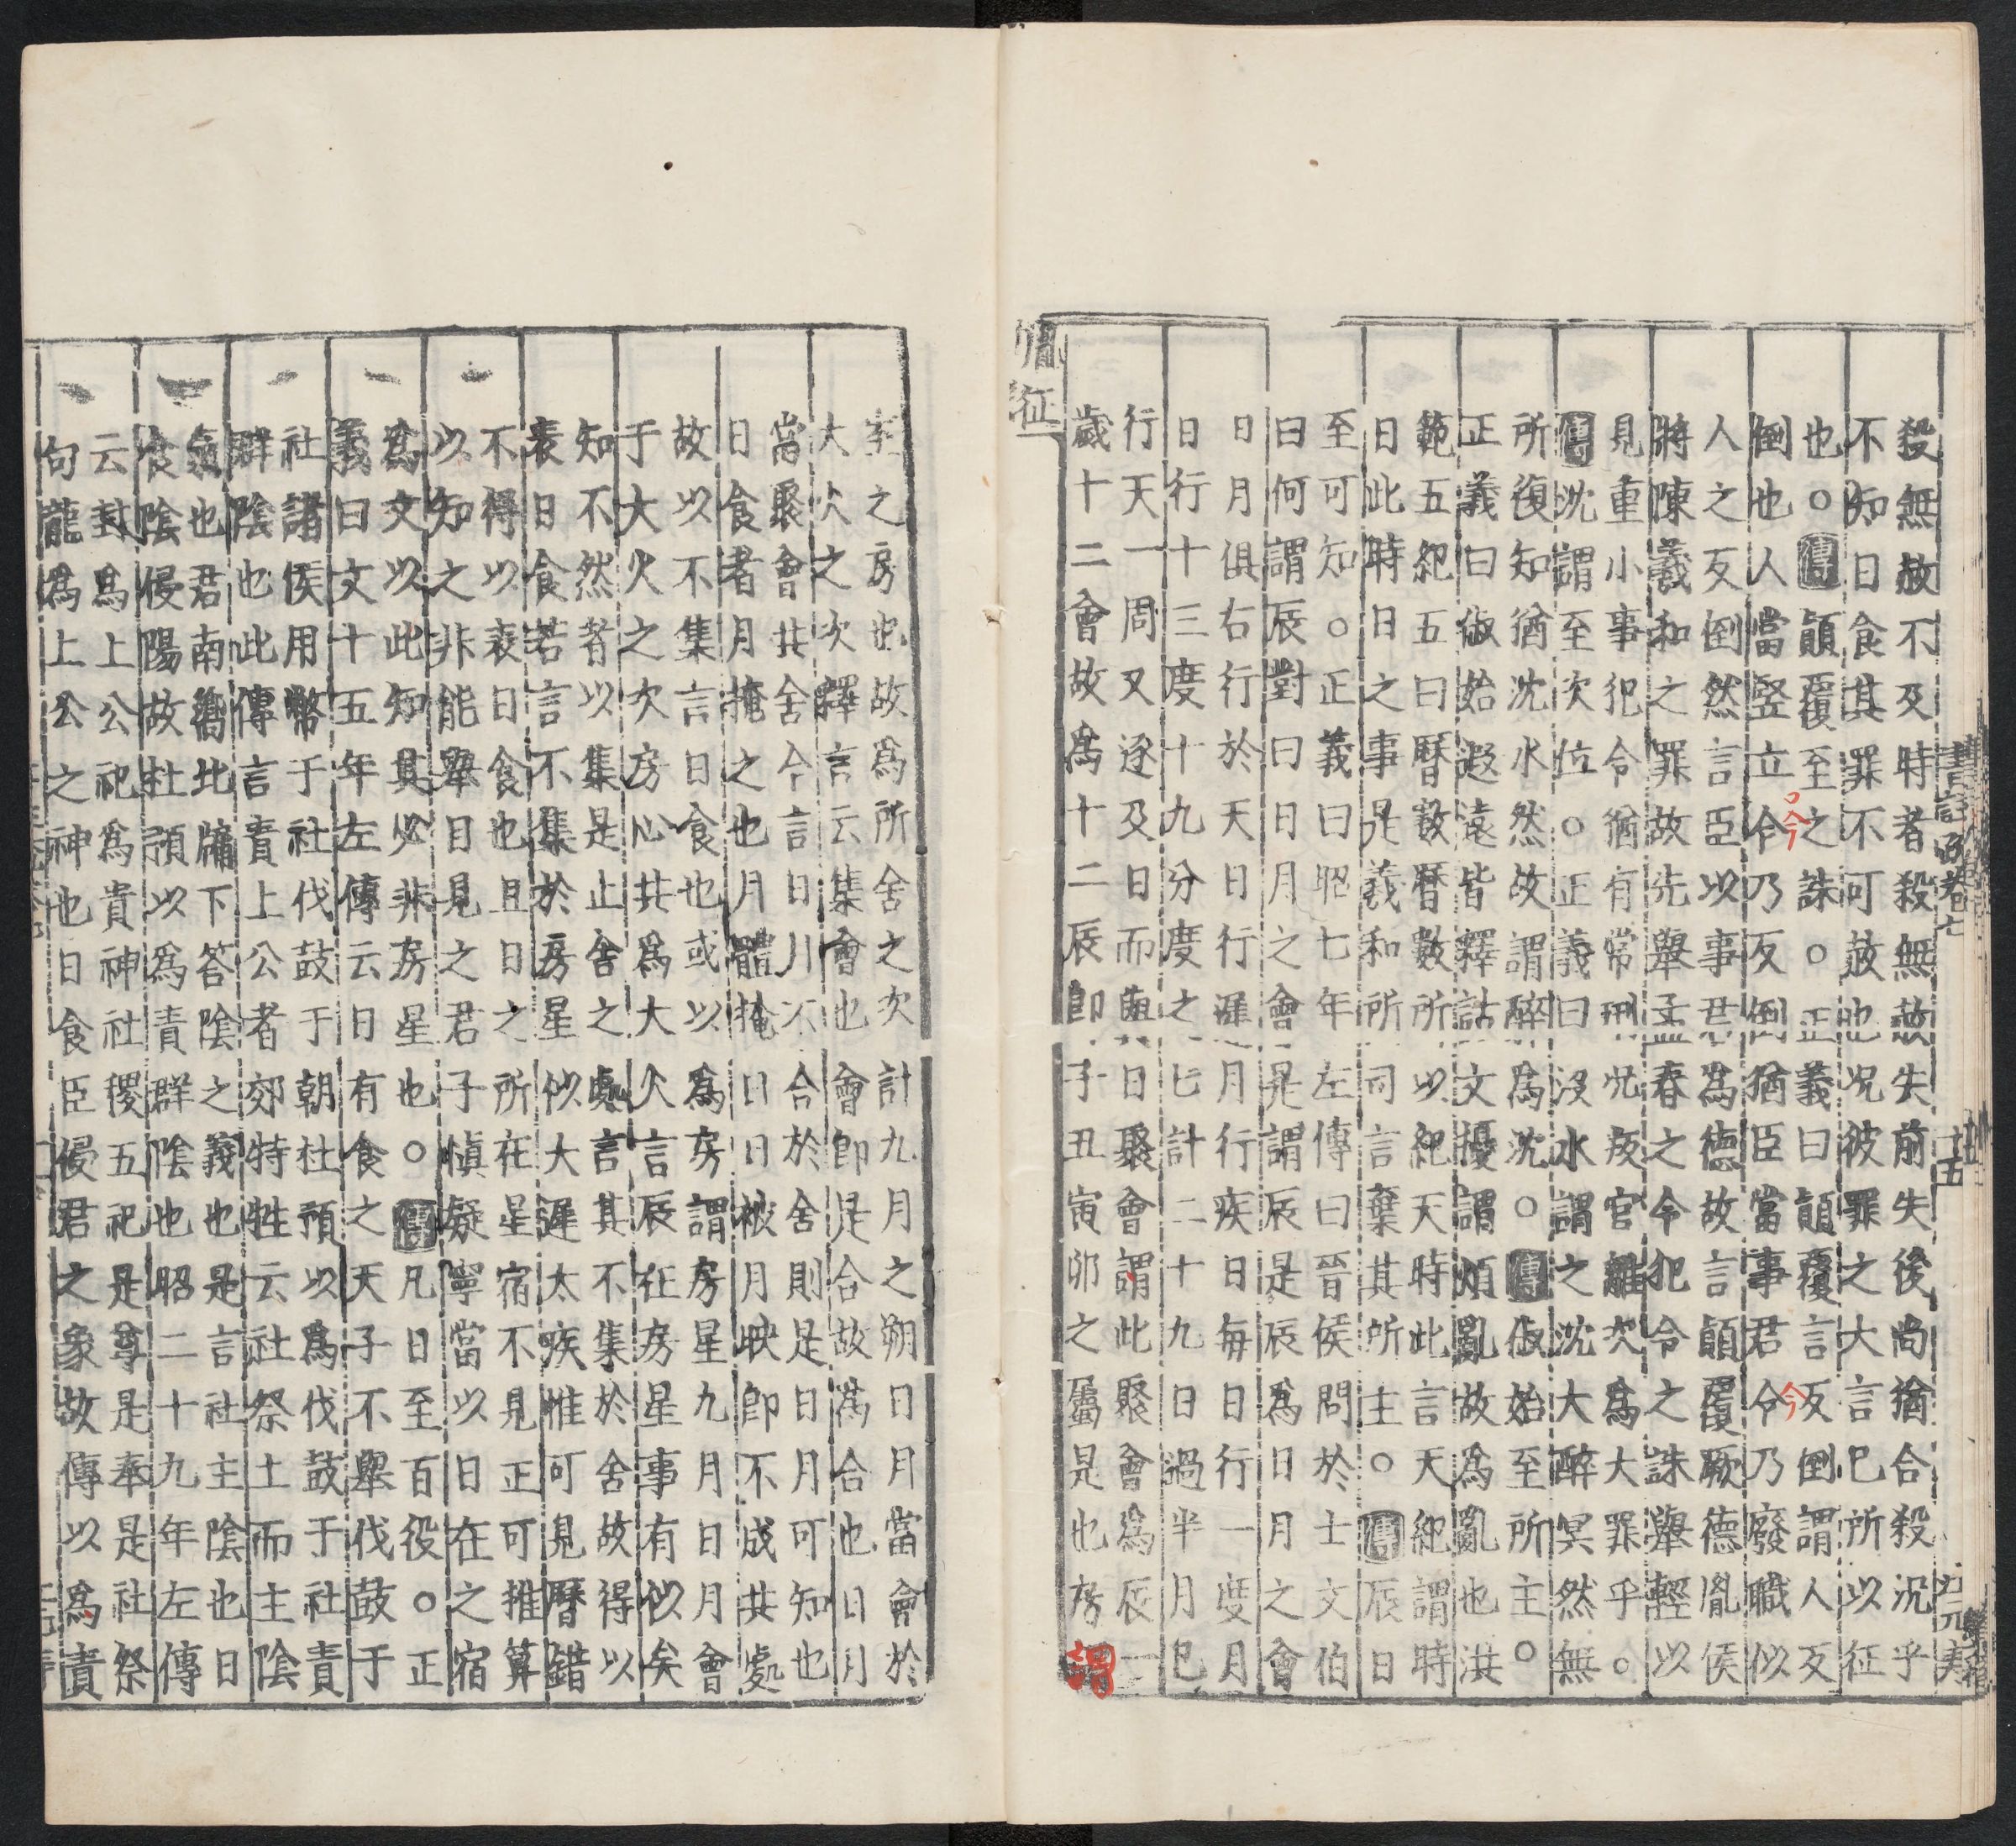 殺無赦不及時者殺無赦失前失後尚猶合殺況乎
不知日食其罪不可赦也況彼罪之大言己所以征
也○傳顚覆至之誅○正義曰顚覆言反倒謂人反
倒也人當竪立今乃反倒猶臣當事君今乃廢職似
人之反倒然言臣以事君爲德故言顚覆厥德胤侯
將陳羲和之罪故先舉孟春之令犯令之誅舉輕以
見重小事犯令猶有常刑況叛官離次爲大罪乎○
傳沈謂至次位○正義曰没水謂之沈大醉冥然無
所復知猶沈水然故謂醉爲沈○傳俶始至所主○
正義曰俶始遐遠皆釋詁文擾謂煩亂故爲亂也洪
範五紀五曰曆數曆數所以紀天時此言天紀謂時
日此時日之事是羲和所司言棄其所主○傳辰日
至可知○正義曰昭七年左傳曰晉侯問於士文伯
曰何謂辰對曰日月之會是謂辰是辰爲日月之會
日月俱右行於天日行遲月行疾日每日行一度月
日行十三度十九分度之七計二十九日過半月已
行天一周又逐及日而與日聚會謂此聚會爲辰一
歲十二會故爲十二辰即子丑寅卯之屬是也房謂
胤征
室之房也故爲所舍之次計九月之朔日月當會於
大火之次釋言云集會也會即是合故爲合也日月
當聚會共舍今言日月不合於舍則是日月可知也
日食者月掩之也月體掩日日被月映即不成共處
故以不集言日食也或以爲房謂房星九月日月會
于大火之次房心共爲大火言辰在房星事有似矣
知不然者以集是止舍之處言其不集於舍故得以
表日食若言不集於房星似大遲太疾惟可見曆錯
不得以表日食也且日之所在星宿不見正可推算
以知之非能舉目見之君子愼疑寧當以日在之宿
爲文以此知其必非房星也○傳凡日至百役○正
義曰文十五年左傳云日有食之天子不舉伐鼓于
社諸侯用幣于社伐鼓于朝杜預以爲伐鼓于社責
群陰也此傳言責上公者郊特牲云社祭土而主陰
氣也君南嚮北牖下答陰之義也是言社主陰也日
食陰侵陽故杜預以爲責群陰也昭二十九年左傳
云封爲上公祀爲貴神社稷五祀是尊是奉是社祭
句龍爲上公之神也日食臣侵君之象故傳以爲責